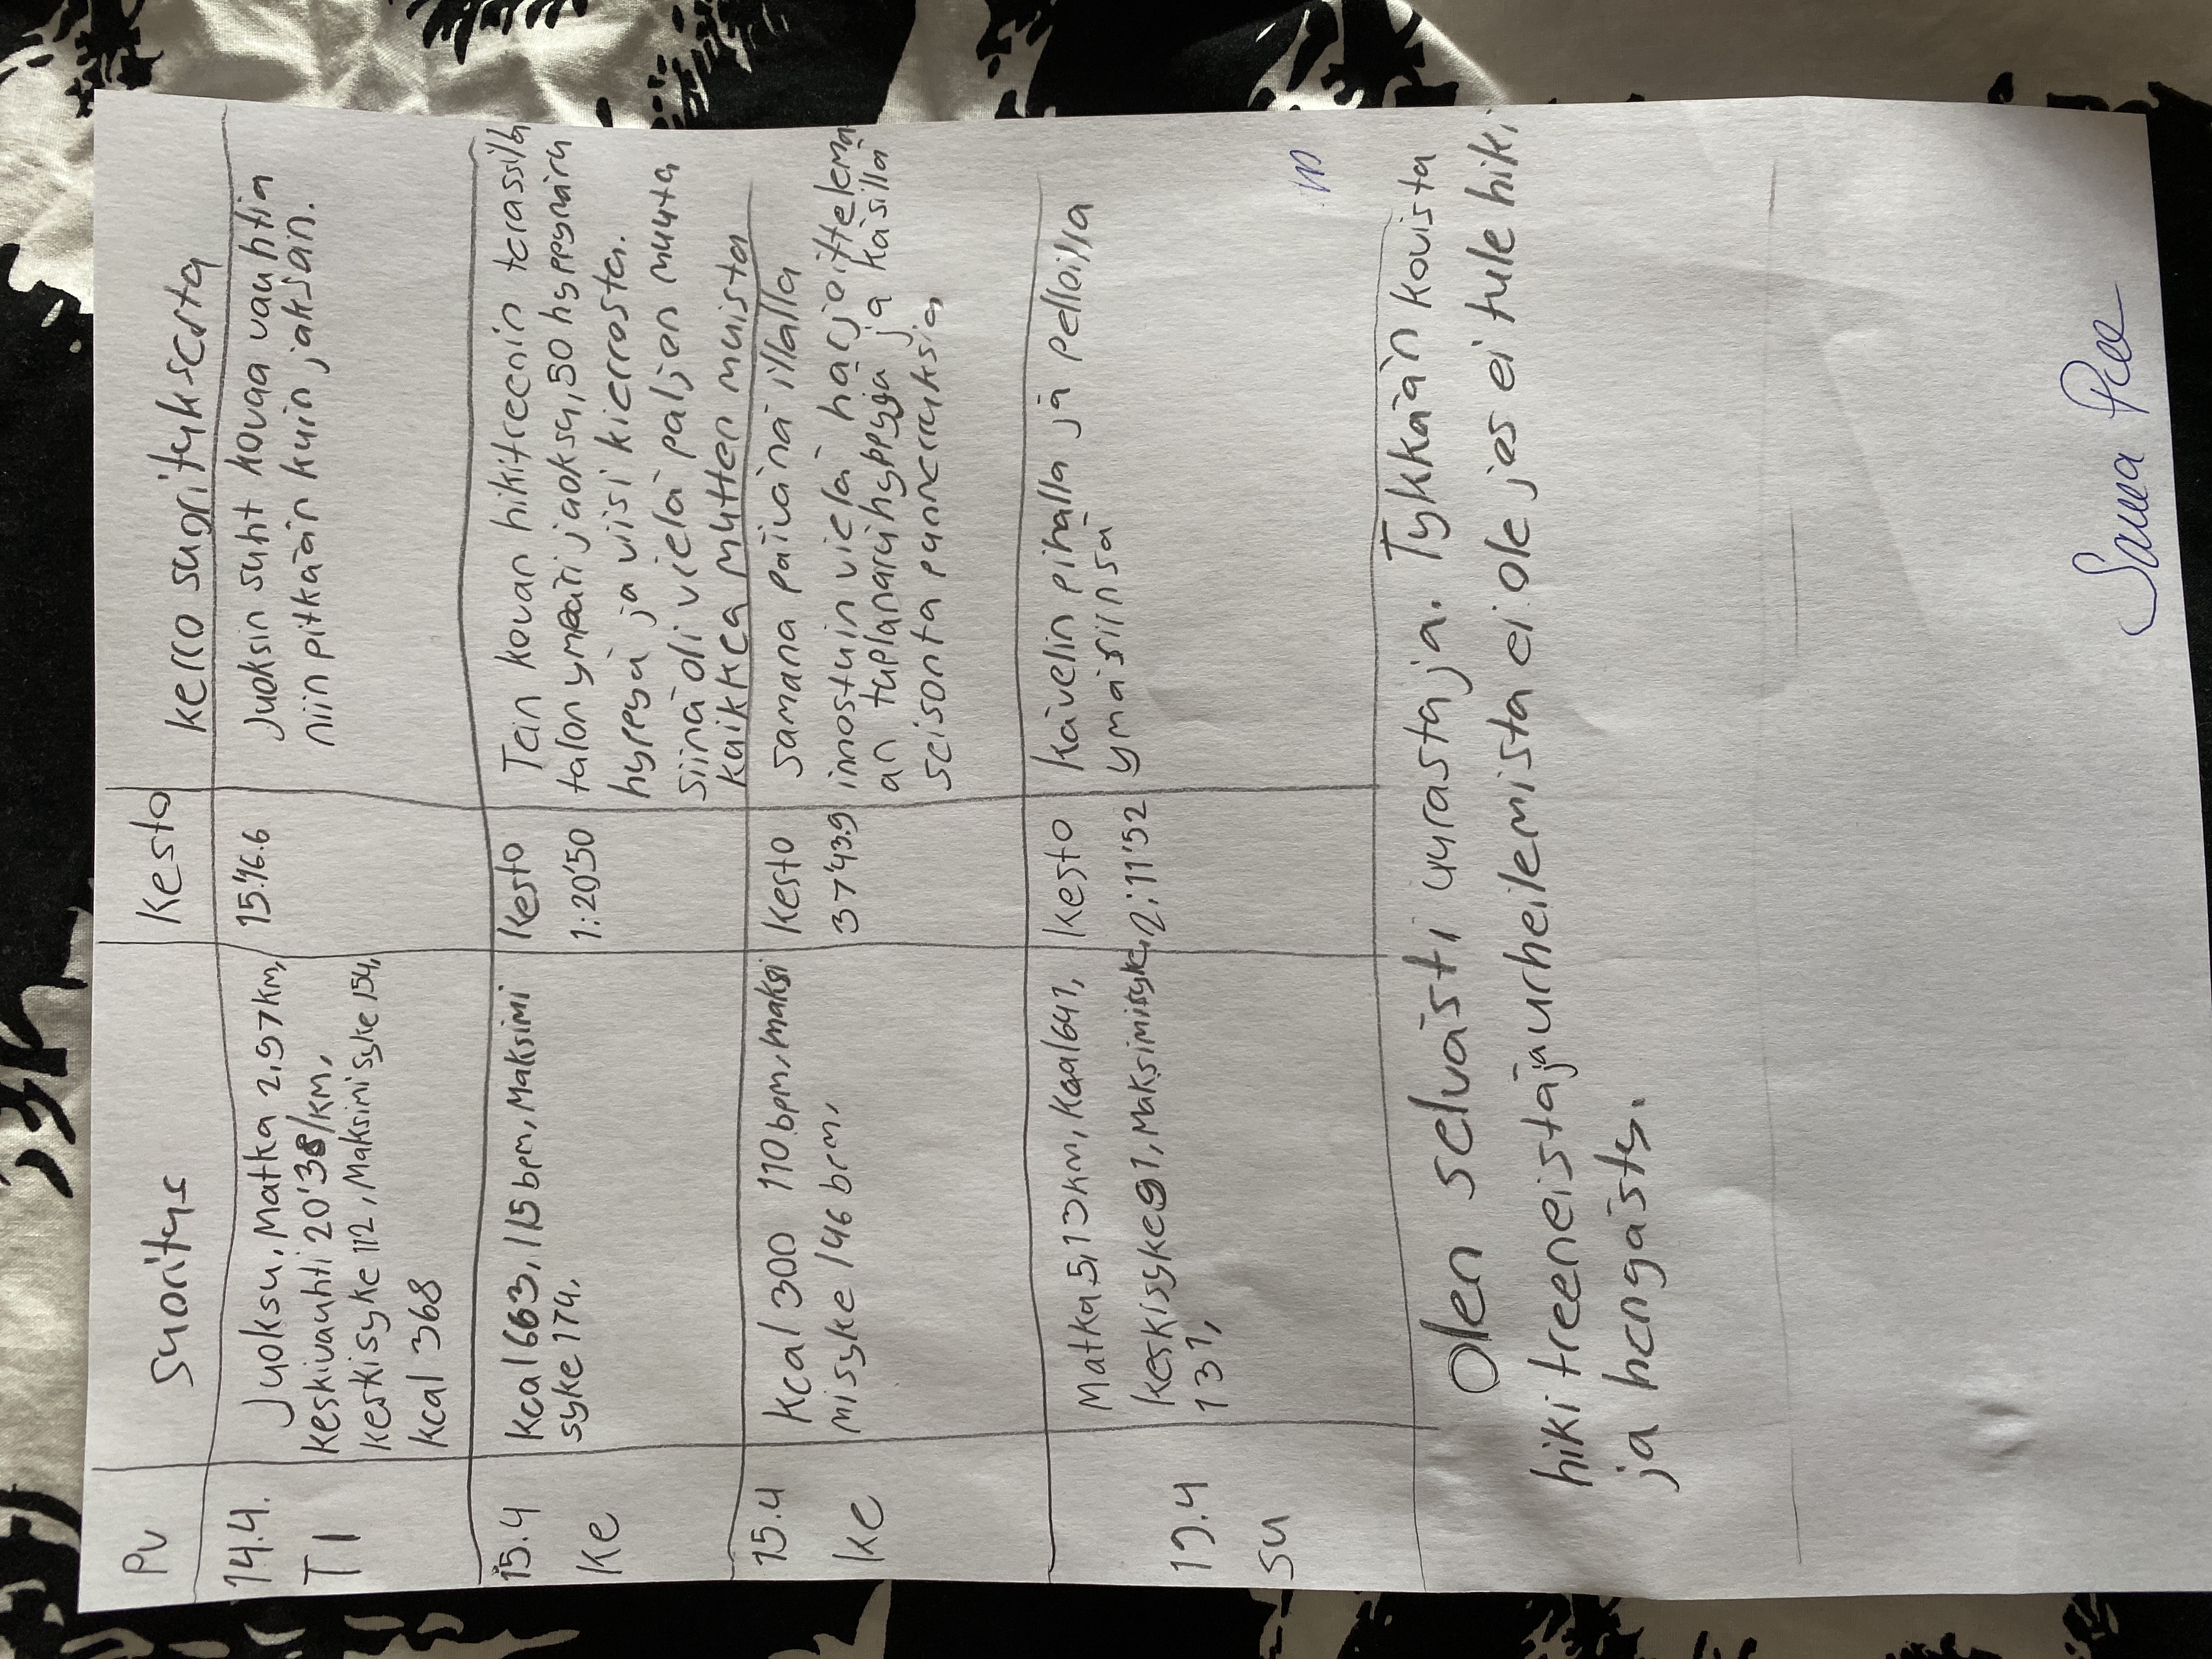 Pv Suoritus Kesto Kerro suorituksesta
14.4. TI
Juoksu, Matka 2,97km,
keskivauhti 20'38/km,
keskisyke 112, Maksimisyke 154,
kcal 368
15'16.6
Juoksin suht kovaa vauhtia
niin pitkään kuin jaksan.
15.4 Ke
kcal 663, 115 bpm, Maksimi
syke 174,
Kesto
1:20'50
Tein kovan hikitreenin terassilla
talon ympäri juoksu, 50 hyppynaru
hyppyä ja viisi kierrosta.
Siinä oli vielä paljon muuta
kaikkea mutten muista
15.4 ke
kcal 300 110 bpm, maksi
misyke 146 brm,
Kesto
37'43.9
Samana päivänä illalla
innostuin vielä harjoittelema
an tuplanaruhyppyjä ja käsillä
seisonta punnerruksia,
19.4 su
Matka 5,13km, Kcal 641,
keskisyke 91, Maksimisyke
131,
kesto
2:11'52
kävelin pihalla ja pelloilla
ymäsiinsä
Olen selvästi uurastaja. Tykkään kovista
hiki treeneistä ja urheilemista ei ole jos ei tule hiki
ja hengästy.